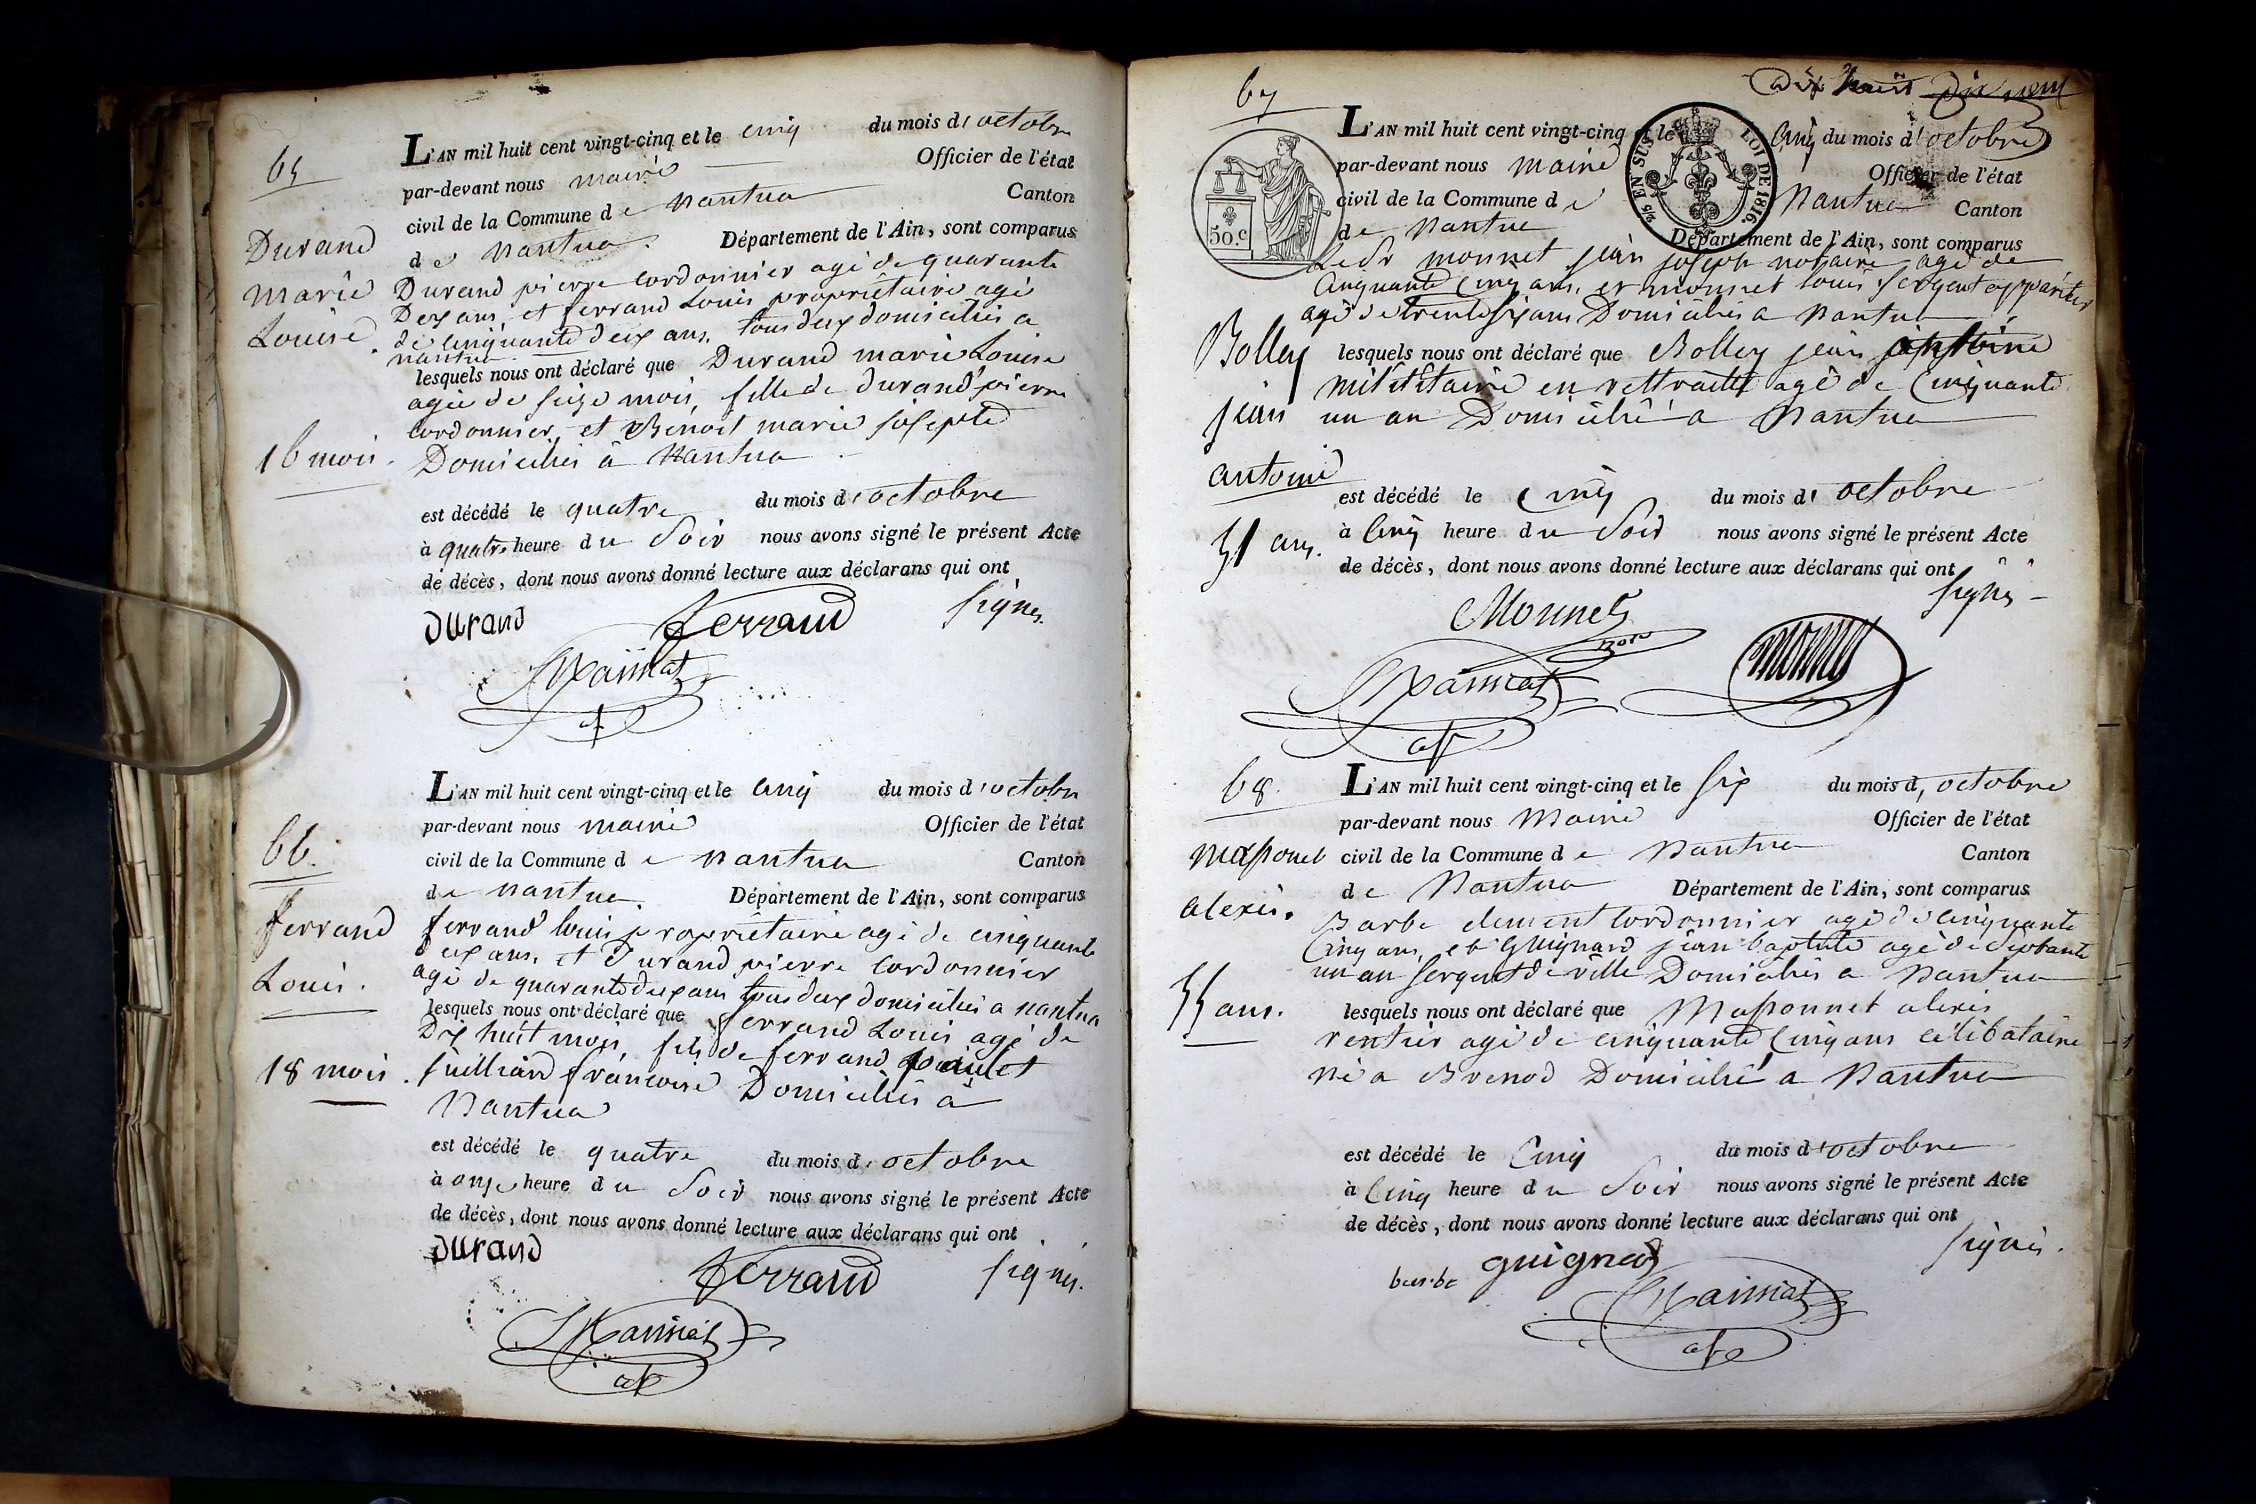 65
L'AN mil huit cent vingt-cinq et le cinq du mois d'octobre
par-devant nous maire Officier de l'état
civil de la Commune de Nantua Canton
de Nantua. Département de l'Ain, sont comparus
Durand pierre cordonnier agé de quarante
Deux ans, et ferrand Louis propriétaire agé
de cinquante deux ans, tous deux domiciliés a
nantua
lesquels nous ont déclaré que Durand marie Louise
agée de seize mois, fille de durand pierre
cordonnier, et Benoit marie josepte
Domiciliés à Nantua
est décédé le quatre du mois d'octobre
à quatre heure du Soir nous avons signé le présent Acte
de décès, dont nous avons donné lecture aux déclarans qui ont
signés.
Durand
marie
Louise.
16 mois.
Durand ferrand
66.
L'AN mil huit cent vingt-cinq et le cinq du mois d'octobre
par-devant nous maire Officier de l'état
civil de la Commune de nantua Canton
de nantua. Département de l'Ain, sont comparus
ferrand louis propriétaire agé de cinquante
deux ans, et Durand pierre cordonnier
agé de quarante deux ans tous deux domiciliés a nantua
lesquels nous ont déclaré que ferrand Louis agé de
Dix huit mois, fils de ferrand et
françoise Domiciliés à
Nantua
est décédé le quatre du mois d'octobre
à onze heure du Soir nous avons signé le présent Acte
de décès, dont nous avons donné lecture aux déclarans qui ont
signés.
ferrand
Louis.
18 mois.
Durand ferrand
Dix huit dix neuf
67
L'AN mil huit cent vingt-cinq et le cinq du mois d'octobre
par-devant nous maire Officier de l'état
civil de la Commune de Nantua Canton
de Nantua Département de l'Ain, sont comparus
Le Sr monnet jean joseph notaire agé de
Cinquante Cinq ans, et monnet louis sergent appariteur
agé de trente six ans Domiciliés a Nantua
lesquels nous ont déclaré que Bolley jean antoine
militaire en rettraitte agé de Cinquante
un an Domicilié a Nantua
est décédé le cinq du mois d'octobre
à Cinq heure du Soir nous avons signé le présent Acte
de décès, dont nous avons donné lecture aux déclarans qui ont
signés
Bolley
jean
antoine
51 ans.
50.c
EN SUS
LOI DE 1816
Monnet
not
monnet
68.
L'AN mil huit cent vingt-cinq et le six du mois d'octobre
par-devant nous Maire Officier de l'état
civil de la Commune de Nantua Canton
de Nantua Département de l'Ain, sont comparus
Barbe clement Cordonnier agé de Cinquante
Cinq ans, et Guignard jean baptiste agé de Soixante
un an sergent de ville Domiciliés a Nantua
lesquels nous ont déclaré que Massonnet alexis
rentier agé de cinquante Cinq ans célibataire
né a Brenod Domicilié a Nantua
est décédé le Cinq du mois d'octobre
à Cinq heure du Soir nous avons signé le présent Acte
de décès, dont nous avons donné lecture aux déclarans qui ont
signés.
massonet
alexis.
55 ans.
barbe